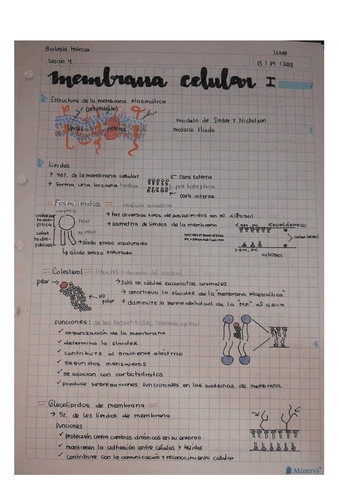 Biología teórica
Lunes
Sesión 4
membrana celular I
Estructura de la membrana plasmática
modelo de Singer y Nicholson
mosaico fluido
Lípidos
de la membrana celular
forma una bicapa lipídica
cara externa
cara interna
Fosfolípidos
polar
no polar
hay diversos tipos de fosfolípidos en el
asimetría de lípidos de la membrana
ácido graso insaturado
ácido graso saturado
Colesterol
polar
no polar
solo en células eucariotas animales
amortigua la fluidez de la "membrana plasmática"
disminuye la permeabilidad de la "MP" al agua
FUNCIONES:
organización de la membrana
determina la fluidez
contribuye al gradiente eléctrico
segundos mensajeros
se asocian con carbohidratos
producir separaciones funcionales en las proteínas de membrana.
Glucolípidos de membrana
5% de los lípidos de membrana
FUNCIONES
protección contra cambios drásticos en su entorno
mantienen la adhesión entre células y tejidos
contribuye con la comunicación y reconocimiento celular
Minerva